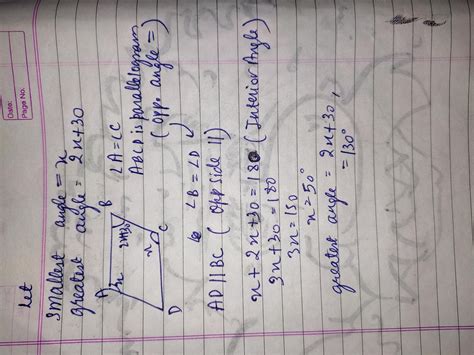 Date:
Page No.
Let
smallest angle = x
greatest angle = 2x+30
A
B
x
2x+30
x
C
D
∠A = ∠C
ABCD is parallelogram
(Oppo angle =)
∠B = ∠D
AD || BC (Opp side ||)
x + 2x + 30 = 180 (Interior Angle)
3x + 30 = 180
3x = 150
x = 50°
greatest angle = 2x+30,
= 130°